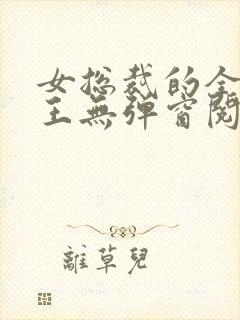 女总裁的全
王無彈窗閱
離草兒